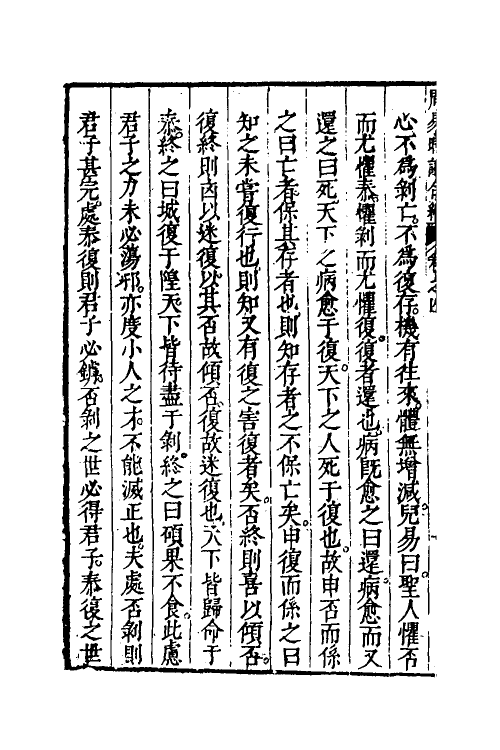 心不爲剝亡不爲復存機有往來體無增減兒易曰聖人懼否
而尤懼泰懼剝而尤懼復復者還也病旣愈之曰還病愈而又
還之曰死天下之病愈于復天下之人死于復也故申否而係
之曰亡者保其存者也則知存者之不保亡矣申復而係之曰
知之未嘗復行也則知又有復之害復者矣否終則喜以傾否
復終則凶以迷復以其否故傾否復故迷復也天下皆歸命于
泰終之曰城復于隍天下皆待盡于剝終之曰碩果不食此慮
君子之力未必蕩邪亦度小人之才不能滅正也夫處否剝則
君子甚完處泰復則君子必鎖否剝之世必得君子泰復之世